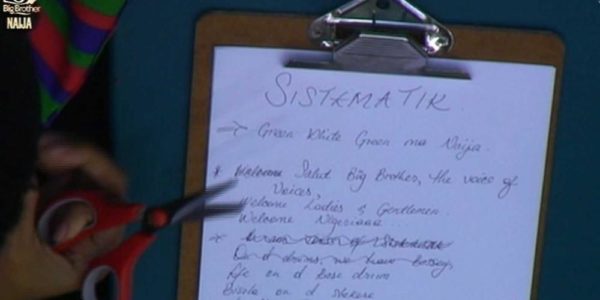 Big Brother
NAIJA
SISTEMATIK
→ Green White Green na Naija.
* Welcome Salut Big Brother, the voice of
Voices,
Welcome Ladies & Gentlemen.
Welcome Nigeriaaa
On d drums, we have
Ife on d base drum
Bisola on d shekere